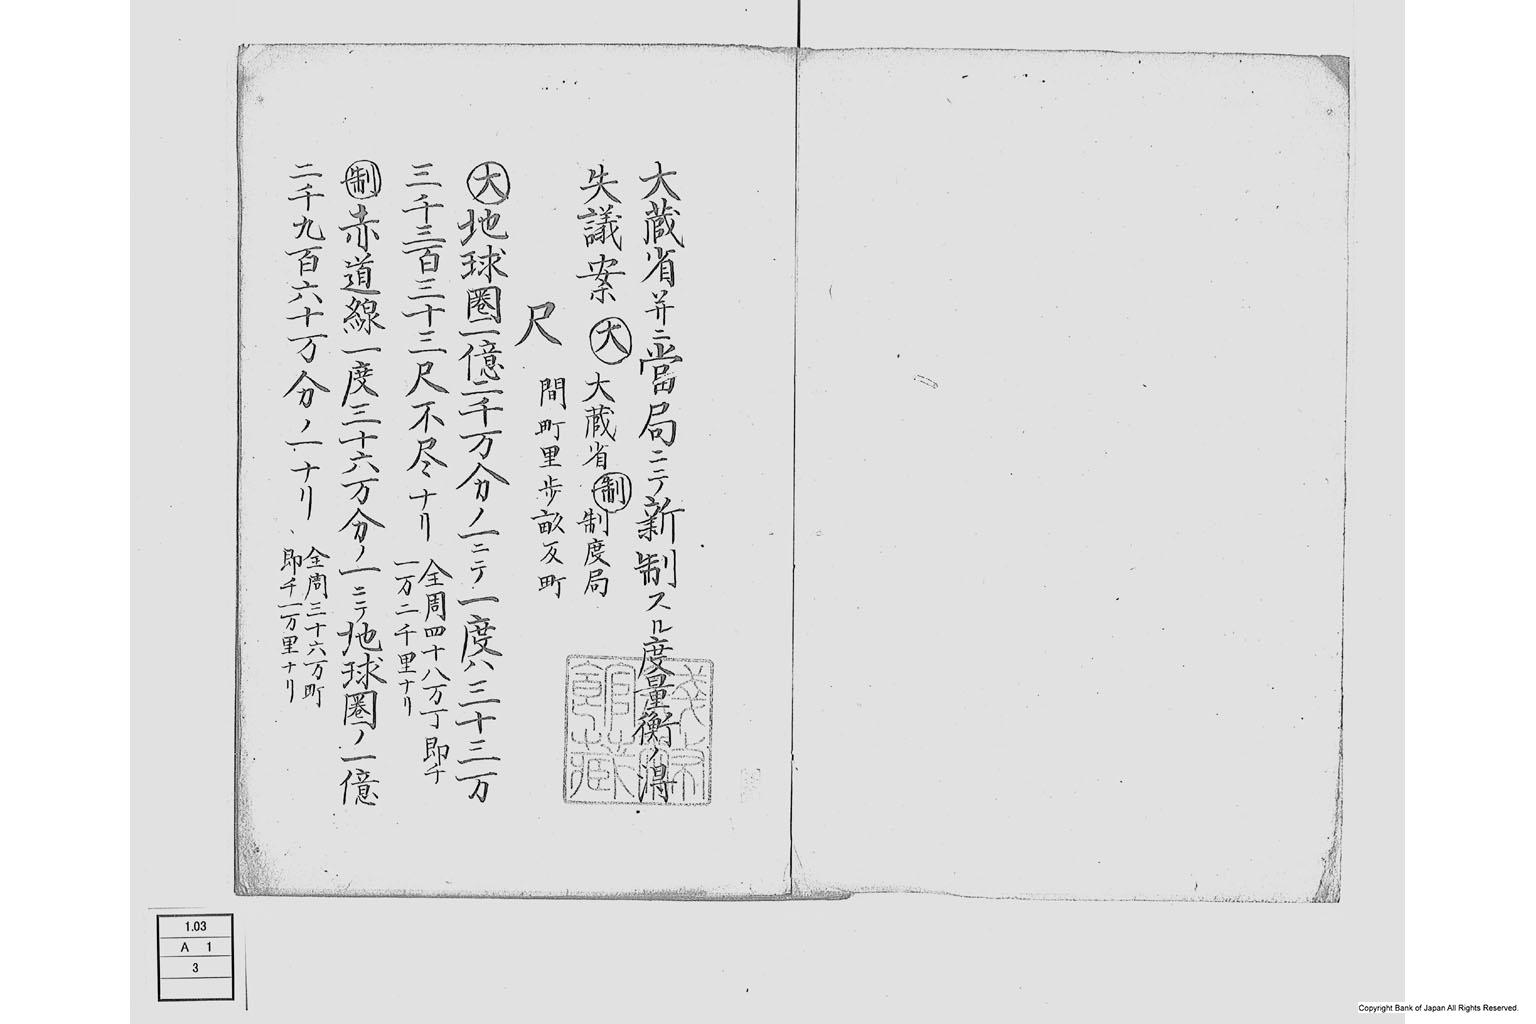 大蔵省并ニ當局ニテ新制スル度量衡ノ得
失議案 大 大蔵省 制 制度局
尺 間町里歩畝反町
大 地球圏一億二千万分ノ一ニテ一度ハ三十三万
三千三百三十三尺不尽ナリ 全周四十八万丁即チ
一万二千里ナリ
制 赤道線一度三十六万分ノ一ニテ地球圏ノ一億
二千九百六十万分ノ一ナリ 全周三十六万町
即チ一万里ナリ
1.03
A 1
3
Copyright Bank of Japan All Rights Reserved.